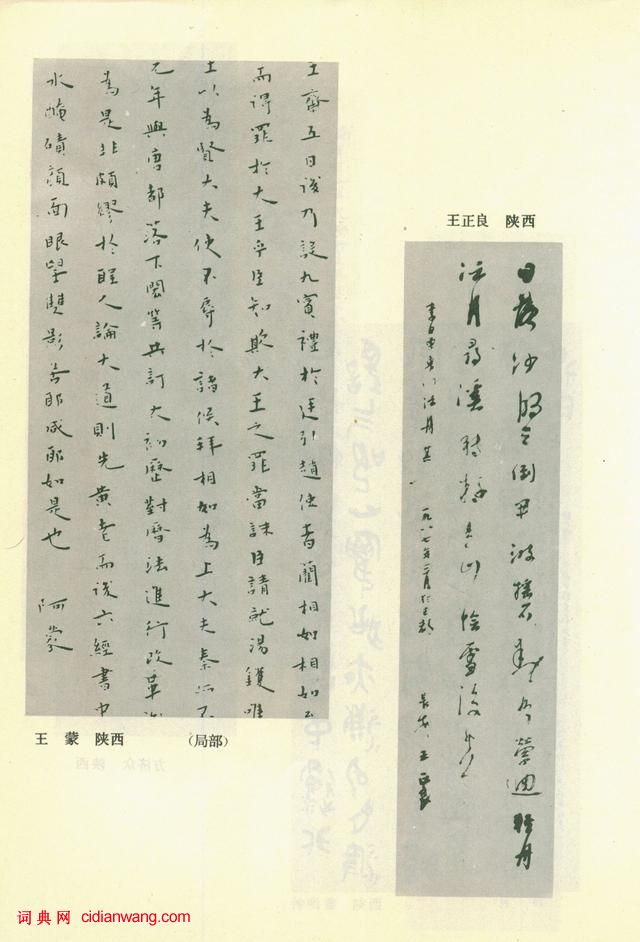 王正良 陕西
日落沙明天倒開波摇石動水縈迴輕舟
泛月尋溪轉疑是山陰雪後來
李白東魯門泛舟 一九八七年二月於古都 長安 王正良
王齋五日後乃設九賓禮於廷引趙使者藺相如相如至
而得罪於大王乎臣知欺大王之罪當誅臣請就湯鑊唯
王以為賢大夫使不辱於諸侯拜相如為上大夫秦亦不
元年與唐都落下閎等共訂大初歷對曆法進行改革
為是非頗繆於聖人論大道則先黃老而後六經書中
水 顏面眼望雙影 如是也 阿蒙
王 蒙 陕西 （局部）
词典网 cidianwang.com